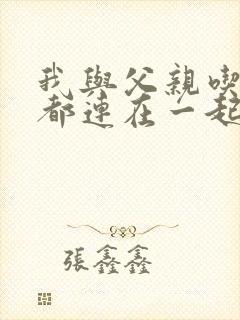 我與父親喫
都連在一起
張鑫鑫